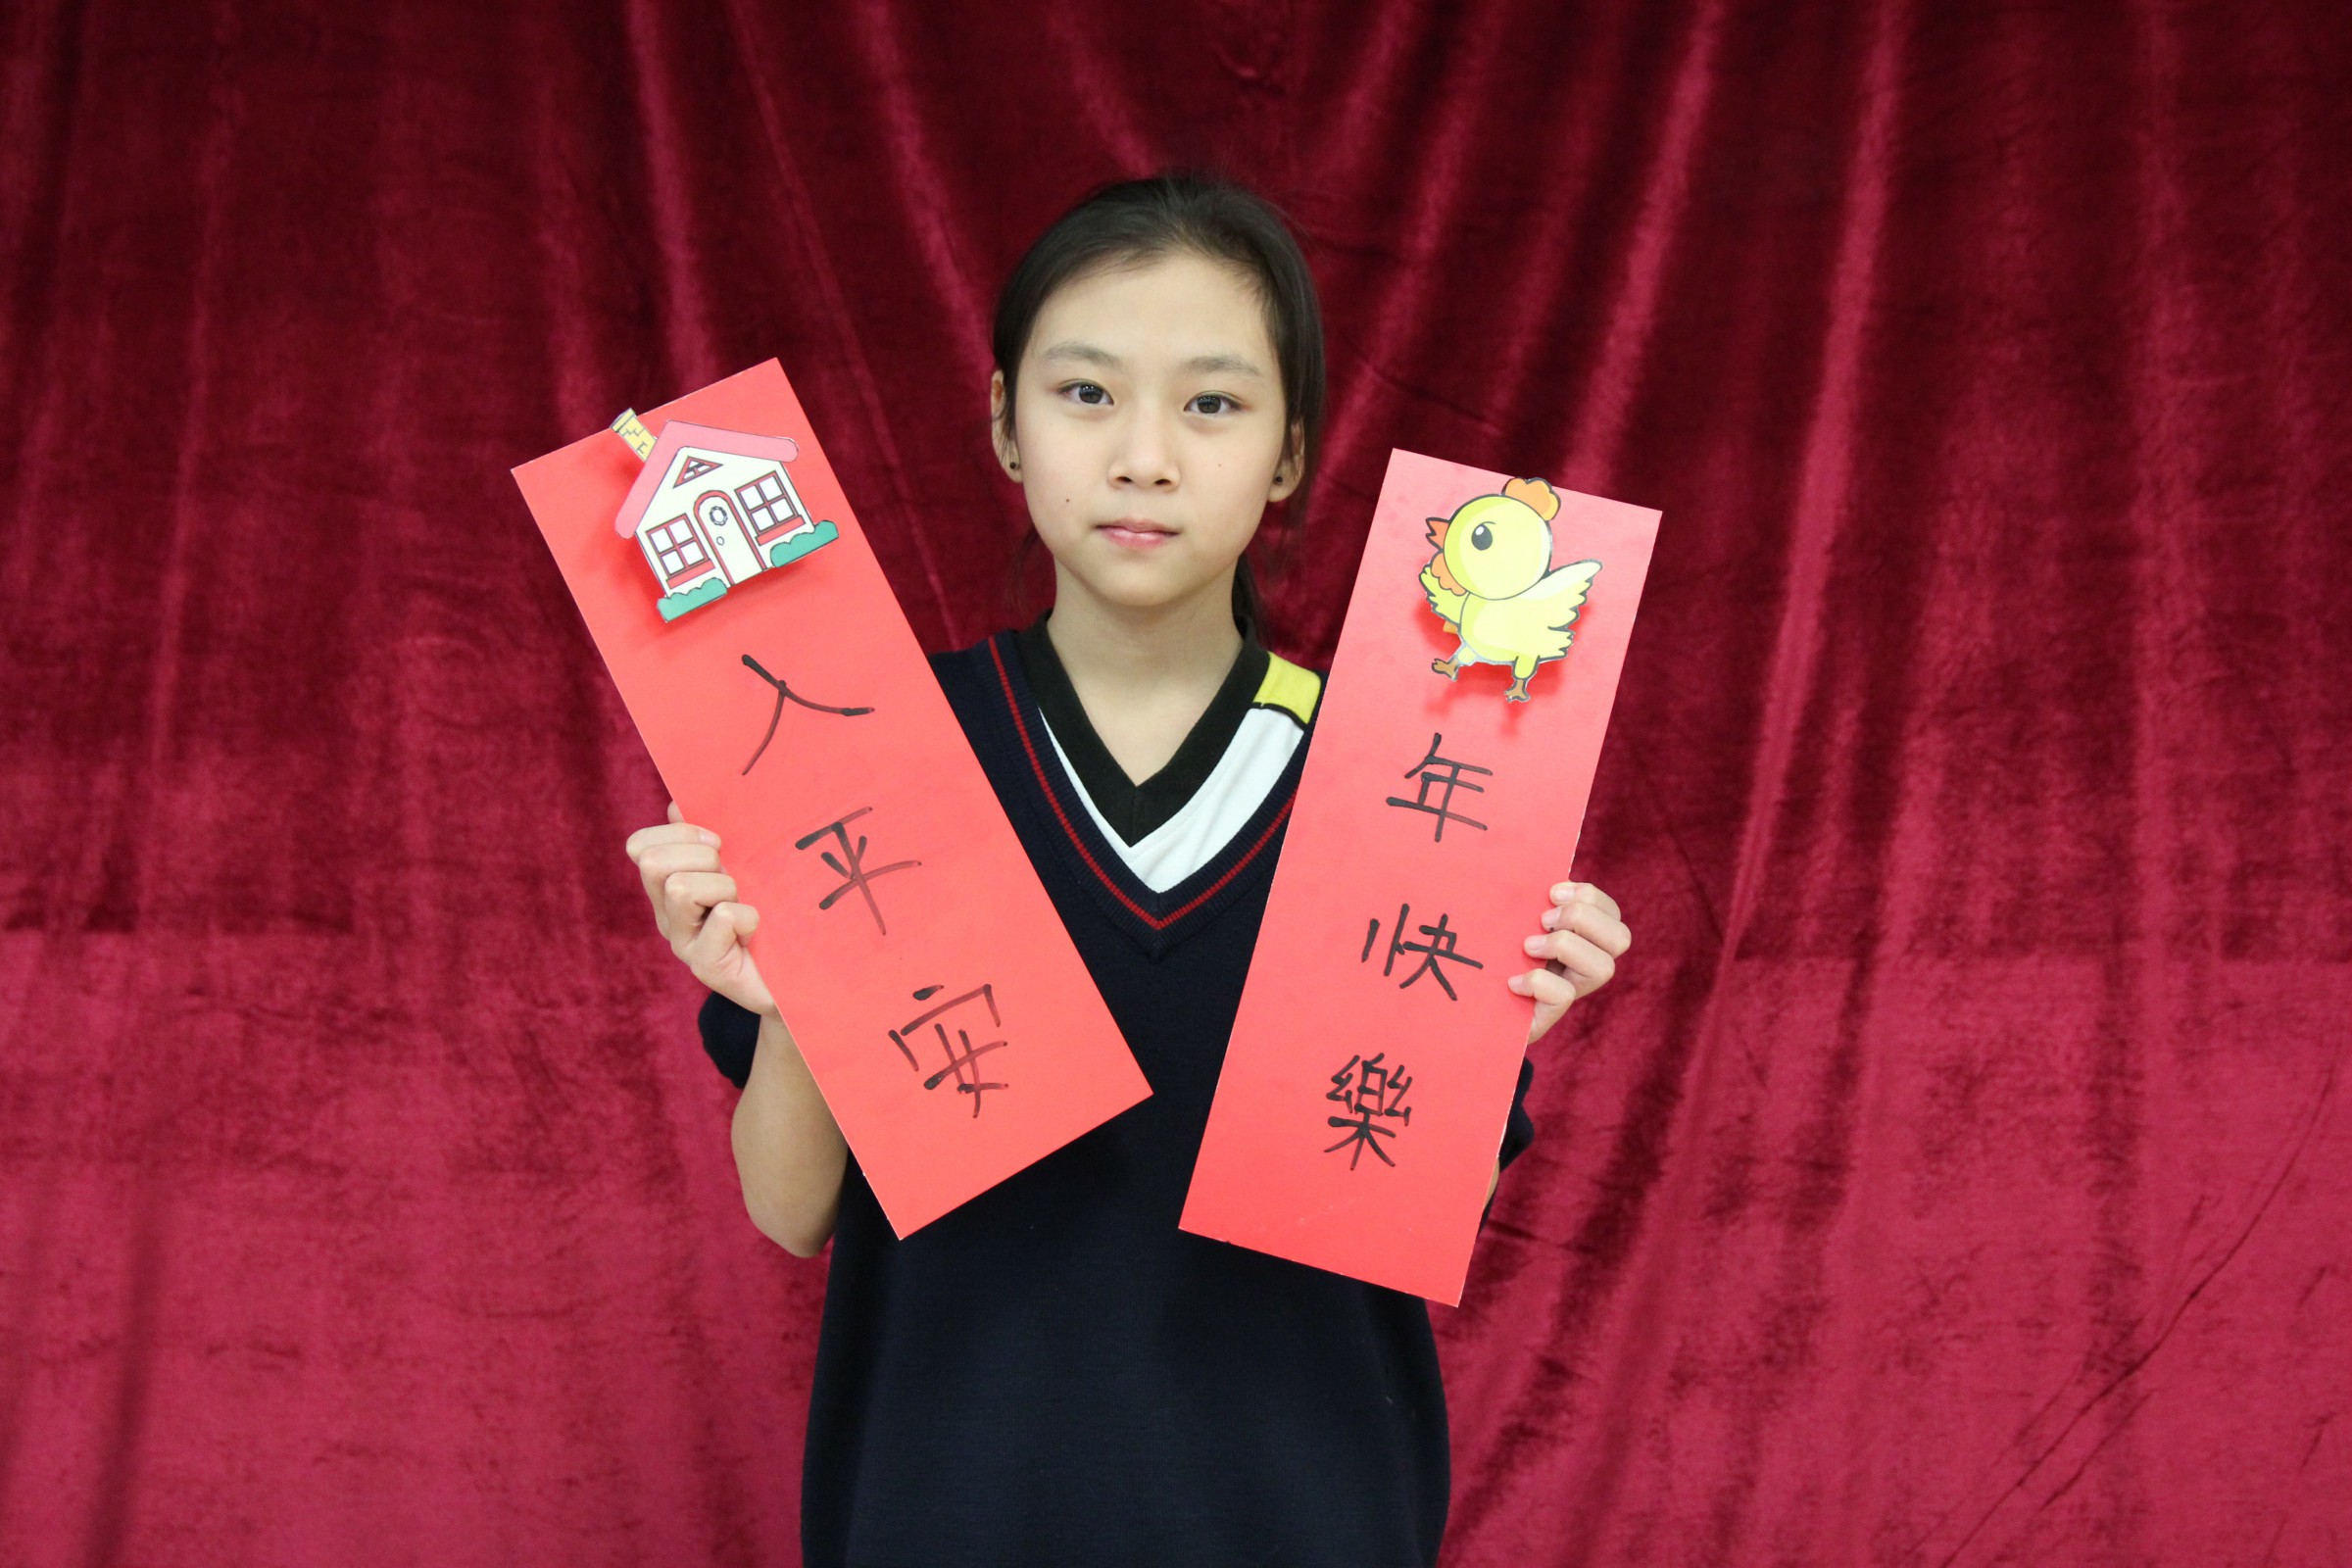 入平安
年快樂